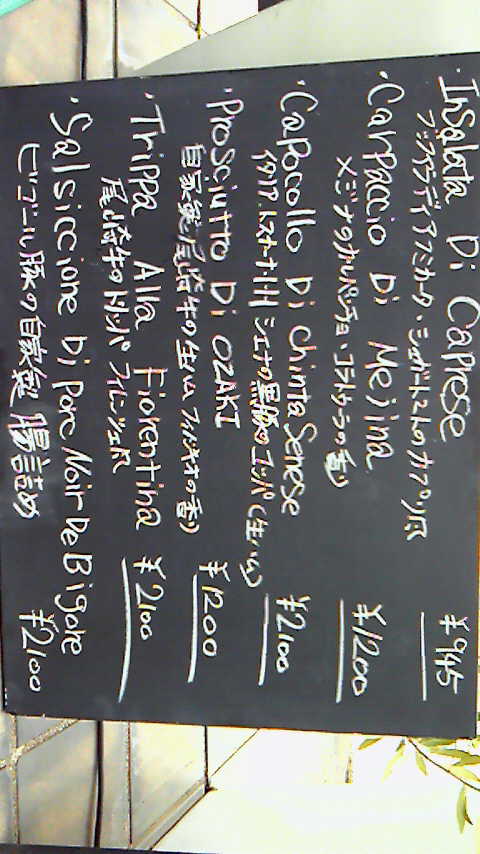 ・Insalata Di Caprese ¥945
・Carpaccio Di Mejina ¥1200
メジナのカルパッチョ・コラトゥーラの香り
・Capocollo Di chinta Senese ¥2100
シエナの黒豚のコッパ(生ハム)
・Prosciutto Di OZAKI ¥1200
自家製尾崎牛の生ハム フィノッキオの香り
・Trippa Alla Fiorentina ¥2100
尾崎牛のトリッパ フィレンツェ風
・Salsiccione Di Porc Noir De Bigore ¥2100
ビゴール豚の自家製 腸詰め